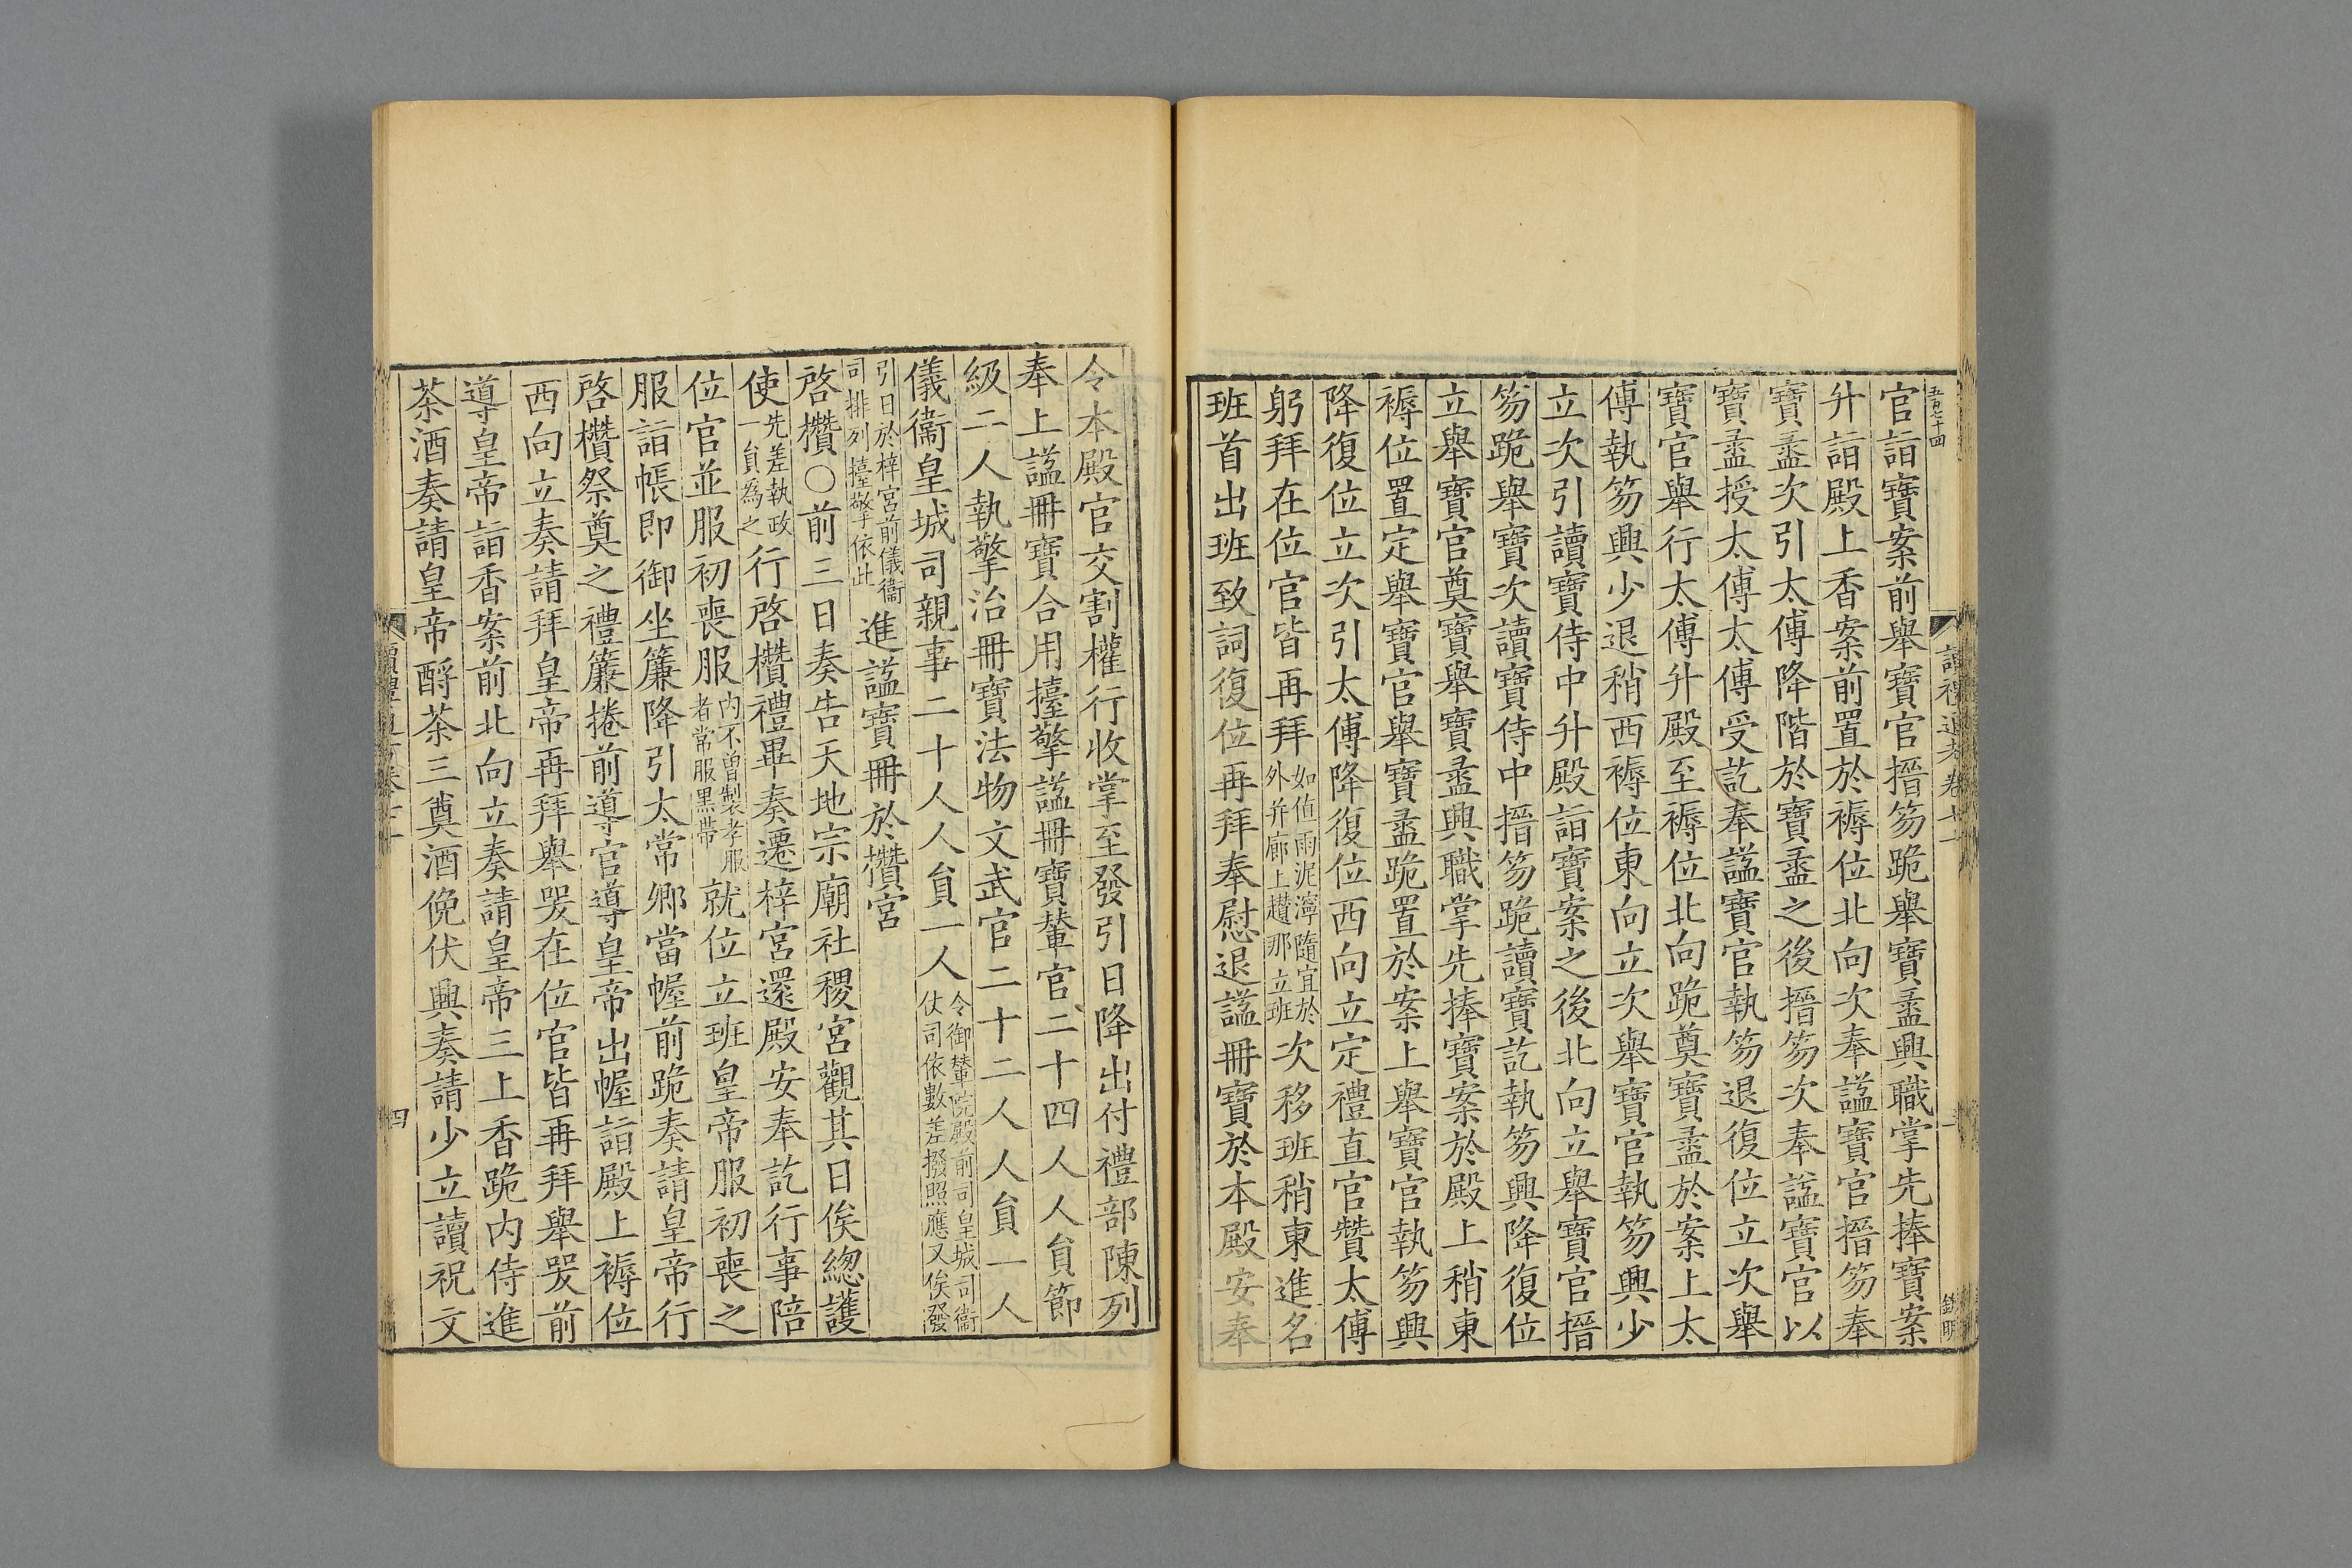 五百七十四
讀禮通考卷七十
官詣寶案前舉寶官搢笏跪舉寶盝興職掌先捧寶案
升詣殿上香案前置於褥位北向次奉諡寶官搢笏奉
寶盝次引太傅降階於寶盝之後搢笏次奉諡寶官以
寶盝授太傅太傅受訖奉諡寶官執笏退復位立次舉
寶官舉行太傅升殿至褥位北向跪奠寶盝於案上太
傅執笏興少退稍西褥位東向立次舉寶官執笏興少
立次引讀寶侍中升殿詣寶案之後北向立舉寶官搢
笏跪舉寶次讀寶侍中搢笏跪讀寶訖執笏興降復位
立舉寶官奠寶舉寶盝興職掌先捧寶案於殿上稍東
褥位置定舉寶官舉寶盝跪置於案上舉寶官執笏興
降復位立次引太傅降復位西向立定禮直官贊太傅
躬拜在位官皆再拜如值雨泥濘隨宜於外并廊上趲那立班次移班稍東進名
班首出班致詞復位再拜奉慰退諡冊寶於本殿安奉
令本殿官交割權行收掌至發引日降出付禮部陳列
奉上諡冊寶合用擡擎諡冊寶輦官二十四人人員節
級二人執擎治冊寶法物文武官二十二人人員一人
儀衞皇城司親事二十人人員一人令御輦院殿前司皇城司衞仗司依數差撥照應又俟發
引日於梓宮前儀衞司排列擡擎依此進諡寶冊於欑宮
啓欑○前三日奏告天地宗廟社稷宮觀其日俟總護
使先差執政一員爲之行啓欑禮畢奏遷梓宮還殿安奉訖行事陪
位官並服初喪服內不曾製孝服者常服黑帶就位立班皇帝服初喪之
服詣帳即御坐簾降引太常卿當幄前跪奏請皇帝行
啓欑祭奠之禮簾捲前導官導皇帝出幄詣殿上褥位
西向立奏請拜皇帝再拜舉哭在位官皆再拜舉哭前
導皇帝詣香案前北向立奏請皇帝三上香跪內侍進
茶酒奏請皇帝酹茶三奠酒俛伏興奏請少立讀祝文
四